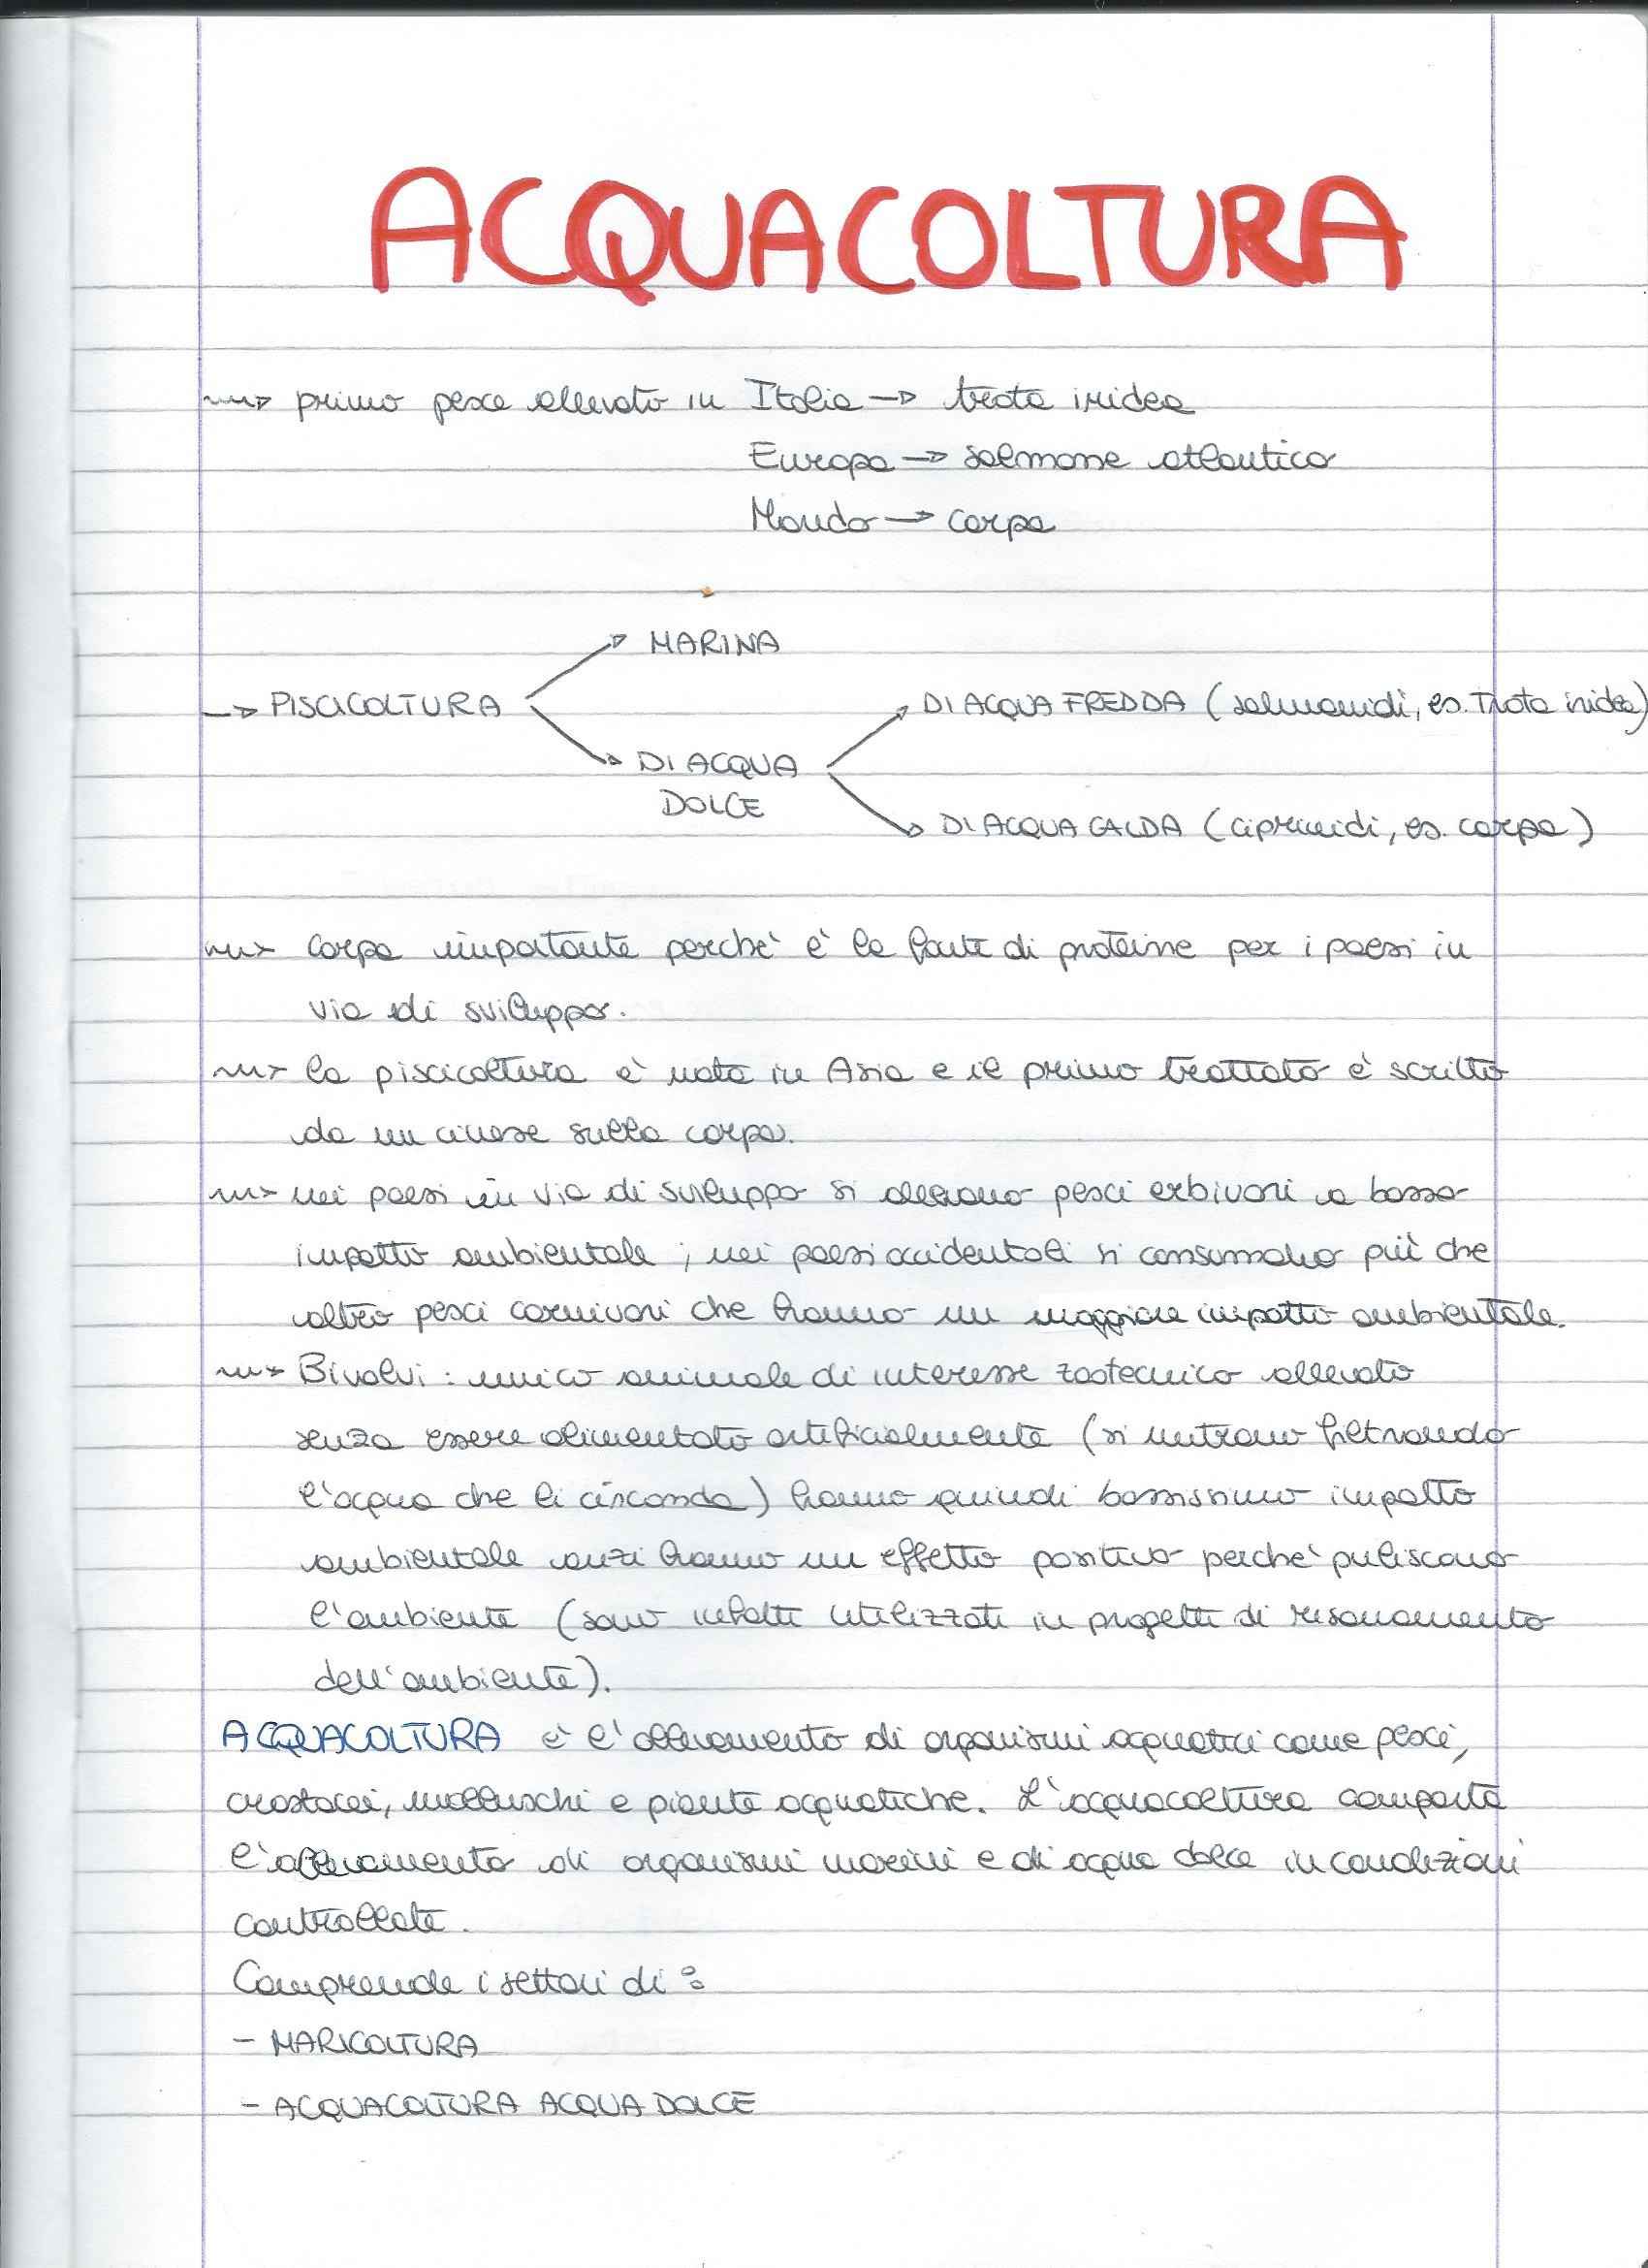 ACQUACOLTURA
~~> primo pesce allevato in Italia -> trota iridea
Europa -> salmone atlantico
Mondo -> carpa
MARINA
-> PISCICOLTURA
DI ACQUA FREDDA (salmonidi, es. Trota iridea)
DI ACQUA
DOLCE
DI ACQUA CALDA (ciprinidi, es. carpa)
~~> Carpa importante perchè è la fonte di proteine per i paesi in
via di sviluppo.
~~> la piscicoltura è nata in Asia e il primo trattato è scritto
da un cinese sulla carpa.
~~> nei paesi in via di sviluppo si allevano pesci erbivori a basso
impatto ambientale ; nei paesi occidentali si consumano più che
altro pesci carnivori che hanno un maggiore impatto ambientale.
~~> Bivalvi : unico animale di interesse zootecnico allevato
senza essere alimentato artificialmente (si nutrono filtrando
l'acqua che li circonda) hanno quindi bassissimo impatto
ambientale anzi hanno un effetto positivo perchè puliscono
l'ambiente (sono infatti utilizzati in progetti di risanamento
dell'ambiente).
ACQUACOLTURA è l'allevamento di organismi acquatici come pesci,
crostacei, molluschi e piante acquatiche. L'acquacoltura comporta
l'allevamento di organismi marini e di acqua dolce in condizioni
controllate.
Comprende i settori di :
- MARICOLTURA
- ACQUACOLTURA ACQUA DOLCE